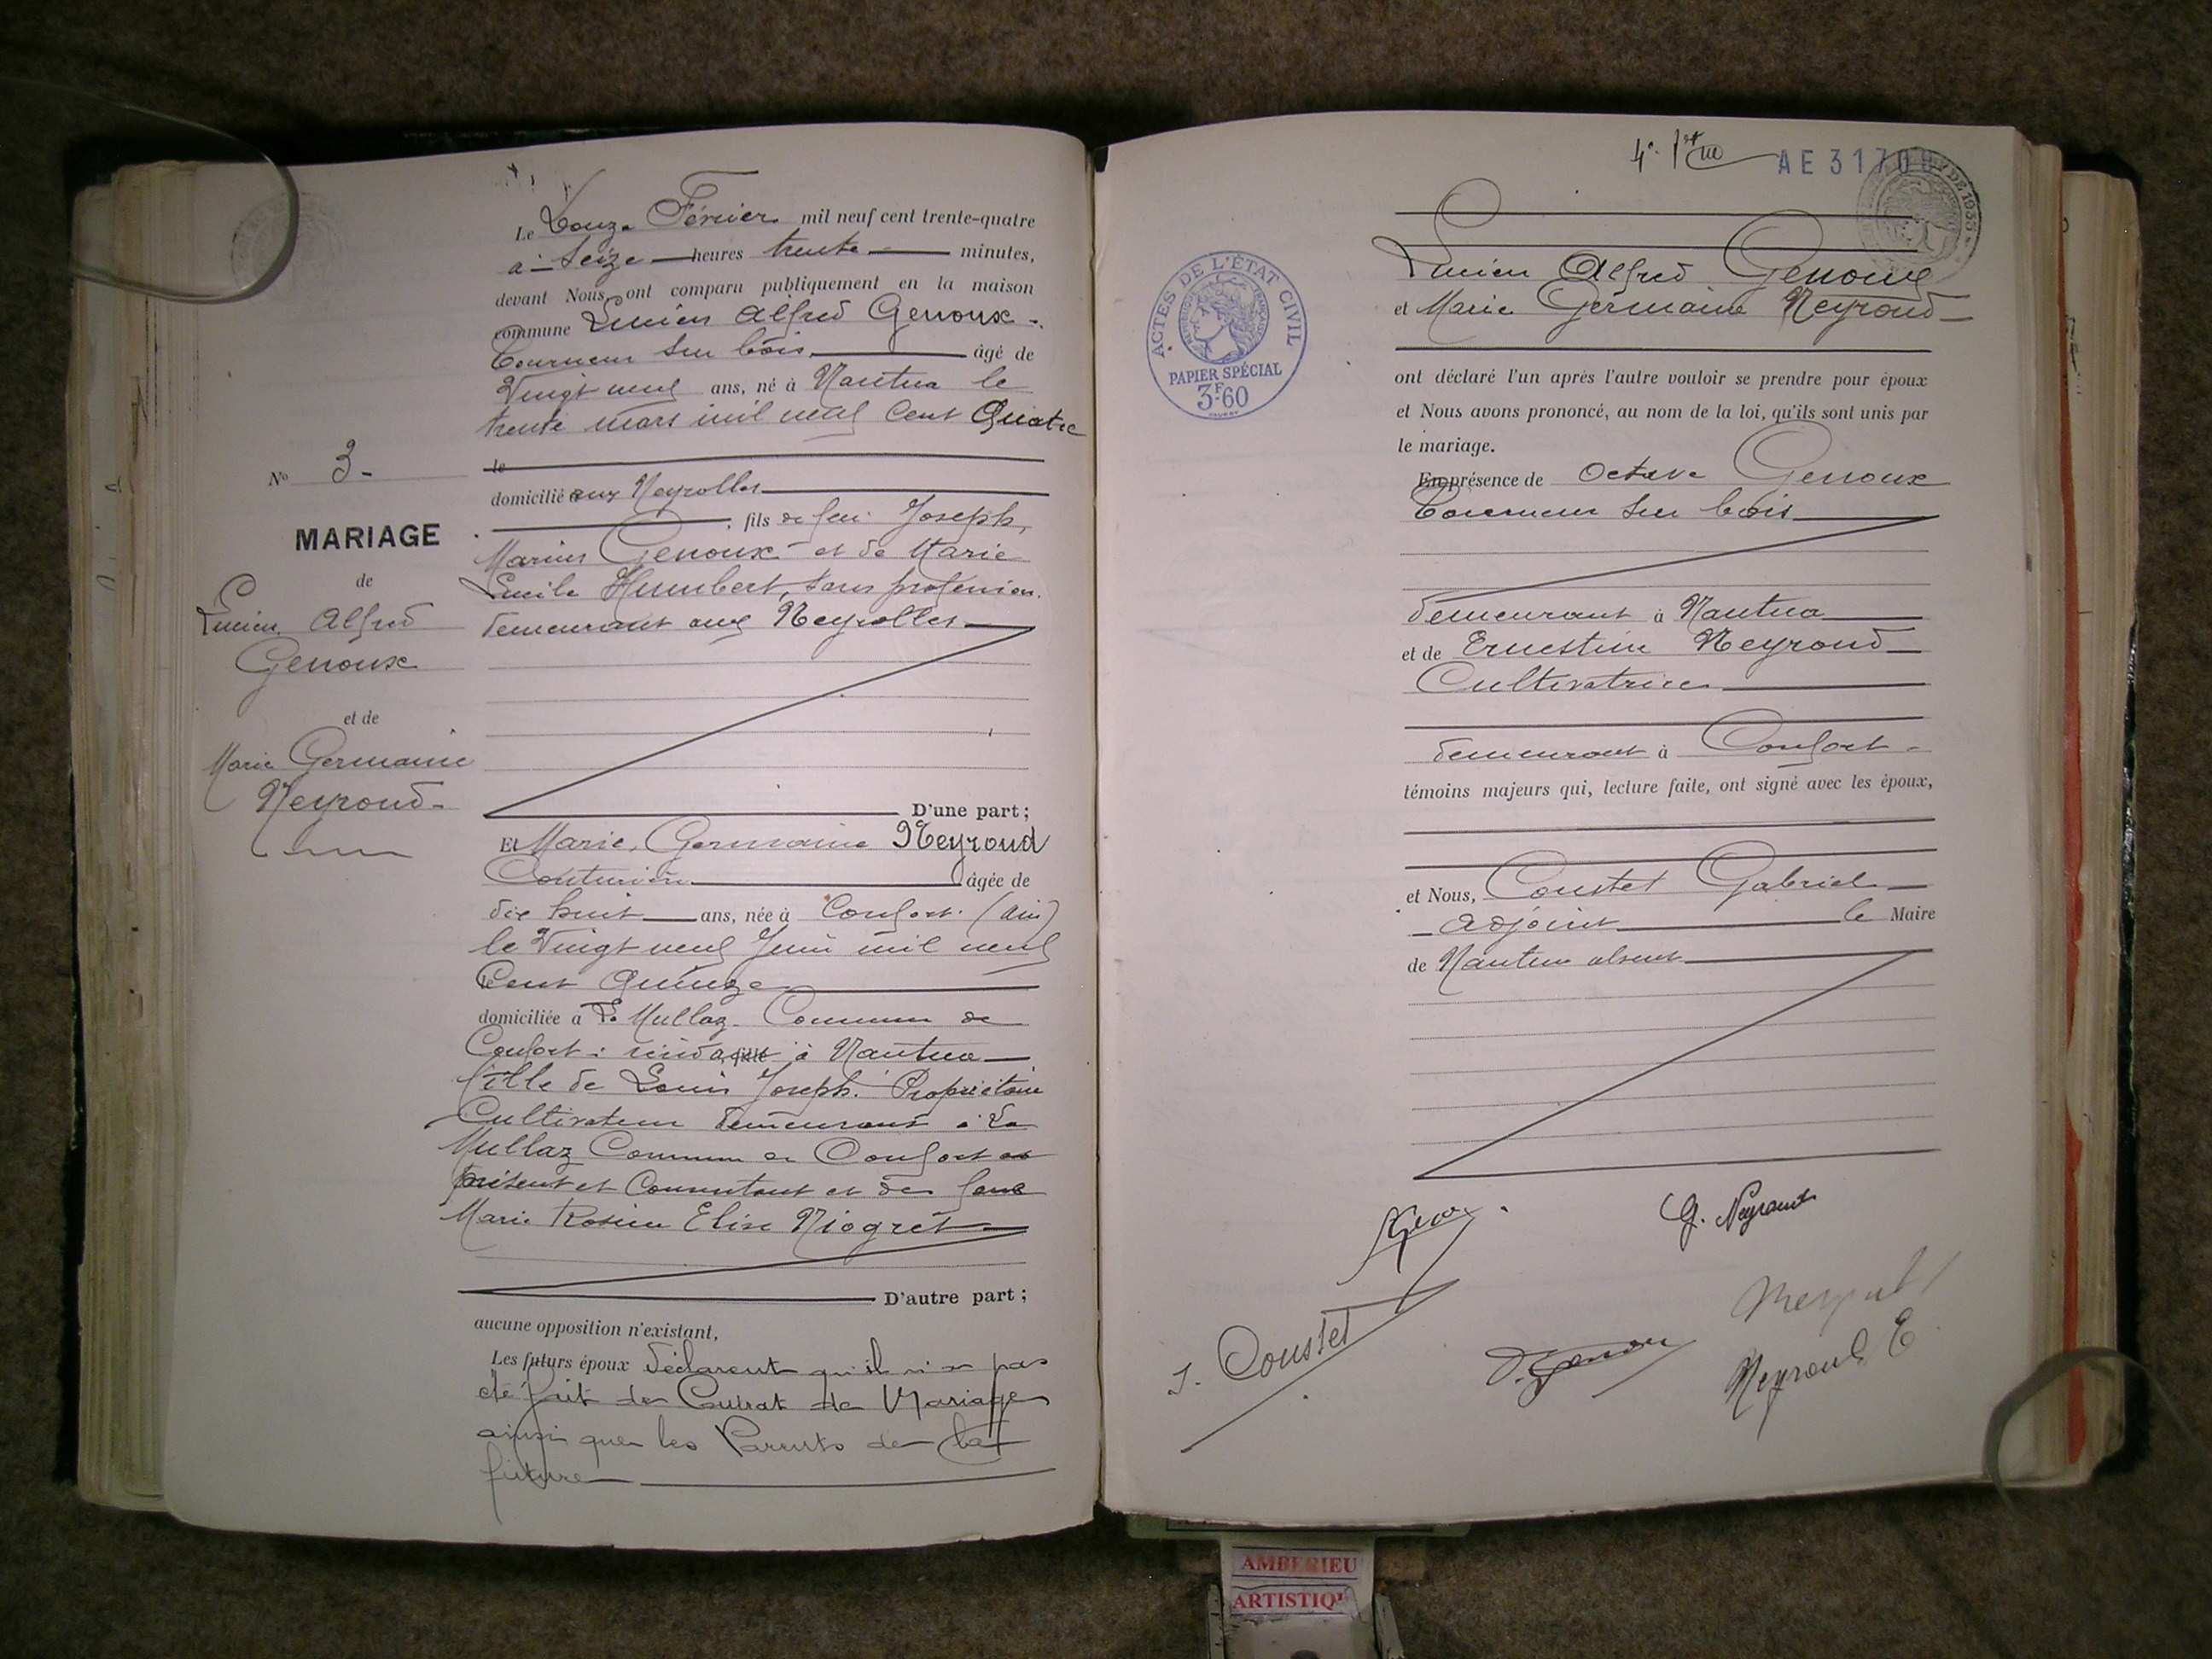 Le Douze Février mil neuf cent trente-quatre
à Seize heures trente minutes,
devant Nous ont comparu publiquement en la maison
commune Lucien Alfred Genoux
Tourneur sur bois âgé de
Vingt neuf ans, né à Nantua le
trente mars mil neuf cent Quatre
le
domicilié aux Neyrolles
, fils de feu Joseph,
Marius Genoux et de Marie
Lucile Humbert, sans profession
demeurant aux Neyrolles
No 3
MARIAGE
de
Lucien Alfred
Genoux
et de
Marie Germaine
Neyroud
D'une part ;
Et Marie, Germaine Neyroud
Couturière âgée de
dix huit ans, née à Confort (Ain)
le Vingt neuf Juin mil neuf
Cent Quinze
domiciliée à La Mullaz Commune de
Confort : résidant à Nantua
fille de Louis Joseph. Propriétaire
Cultivateur demeurant à La
Mullaz Commune de Confort
présent et Consentant et de feue
Marie Rosine Elise Niogret
D'autre part ;
aucune opposition n'existant,
Les futurs époux déclarent qu'il n'a pas
été fait de Contrat de Mariage
ainsi que les Parents de la
future
4e
AE 3170
Lucien Alfred Genoux
et Marie Germaine Neyroud
ACTES DE L'ÉTAT CIVIL
PAPIER SPÉCIAL
3F.60
ont déclaré l'un après l'autre vouloir se prendre pour époux
et Nous avons prononcé, au nom de la loi, qu'ils sont unis par
le mariage.
En présence de Octave Genoux
Tourneur sur bois
demeurant à Nantua
et de Ernestine Neyroud
Cultivatrice
demeurant à Confort
témoins majeurs qui, lecture faite, ont signé avec les époux,
et Nous, Coustet Gabriel
Adjoint le Maire
de Nantua absent
G. Neyroud
Coustet
Neyroud E
AMBERIEU
ARTISTIQU